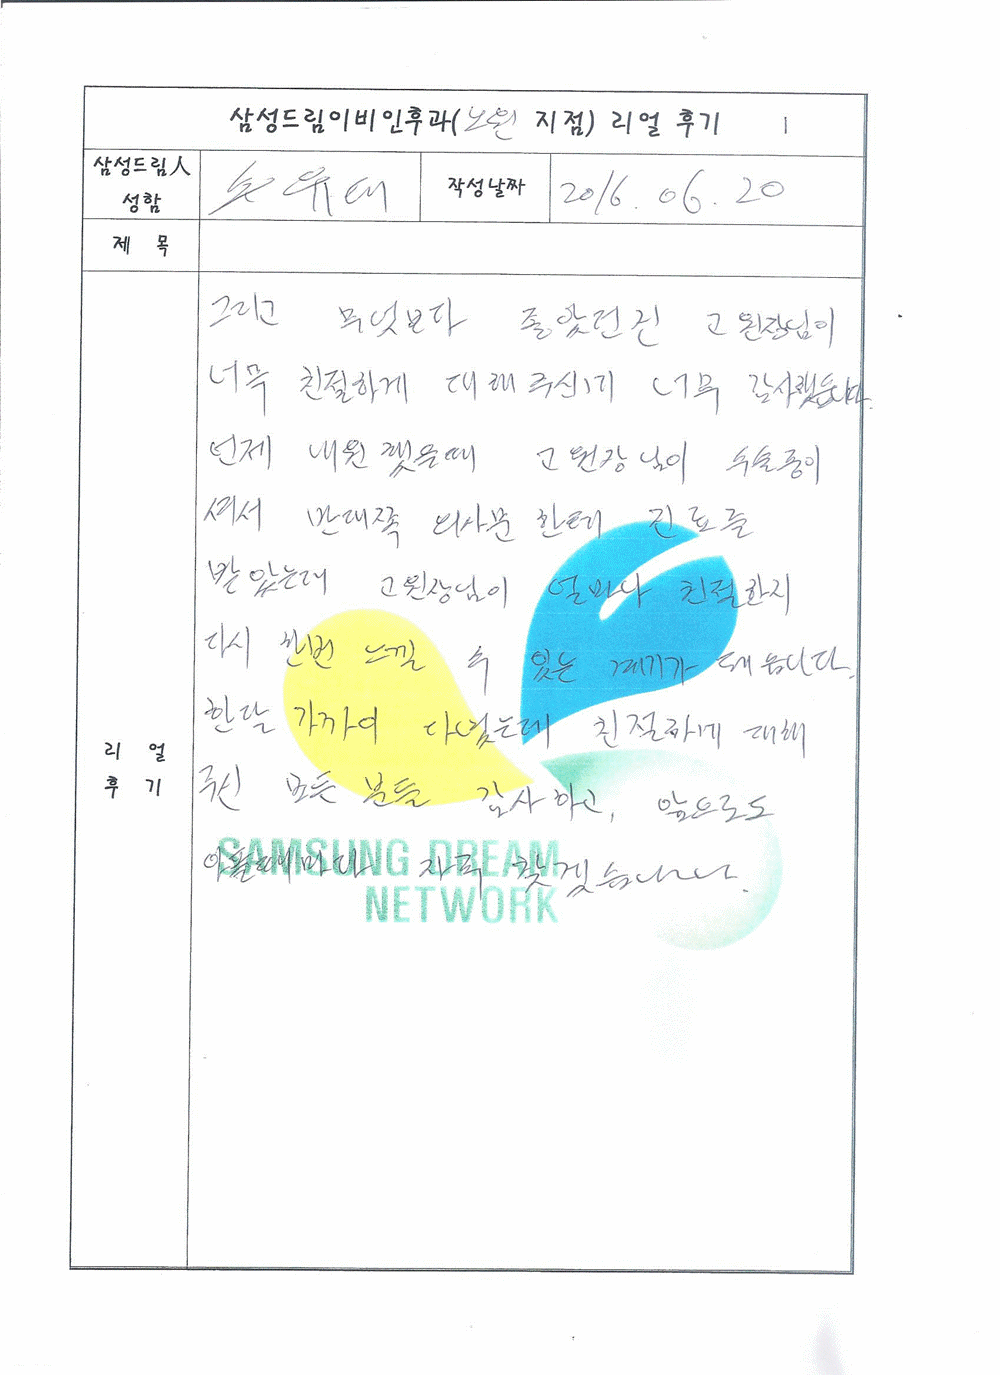 삼성드림이비인후과(노원 지점) 리얼 후기 1
삼성드림人
성함
손유태
작성날짜
2016. 06. 20
제 목
그리고 무엇보다 좋았던건 고원장님이
너무 친절하게 대해주신기 너무 감사했습니다.
언제 내원했을때 고원장님이 수술중이
셔서 반대쪽 의사분한테 진료를
받았는데 고원장님이 얼마나 친절한지
다시 한번 느낄 수 있는 계기가 돼습니다.
한달 가까이 다녔는데 친절하게 대해
주신 모든 분들 감사하고, 앞으로도
아플때마다 자주 찾겠습니다.
리 얼
후 기
SAMSUNG DREAM
NETWORK